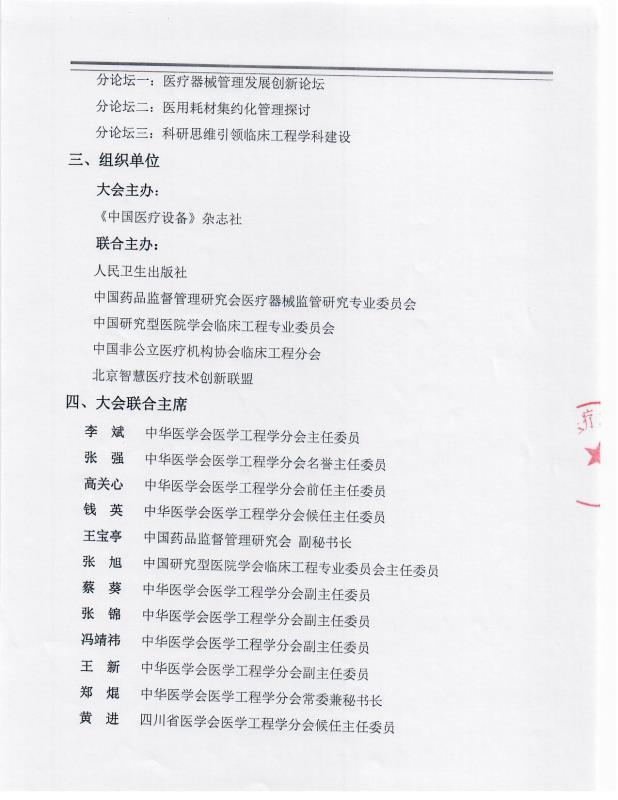 分论坛一：医疗器械管理发展创新论坛
分论坛二：医用耗材集约化管理探讨
分论坛三：科研思维引领临床工程学科建设
三、组织单位
大会主办：
《中国医疗设备》杂志社
联合主办：
人民卫生出版社
中国药品监督管理研究会医疗器械监管研究专业委员会
中国研究型医院学会临床工程专业委员会
中国非公立医疗机构协会临床工程分会
北京智慧医疗技术创新联盟
四、大会联合主席
李 斌 中华医学会医学工程学分会主任委员
张 强 中华医学会医学工程学分会名誉主任委员
高关心 中华医学会医学工程学分会前任主任委员
钱 英 中华医学会医学工程学分会候任主任委员
王宝亭 中国药品监督管理研究会 副秘书长
张 旭 中国研究型医院学会临床工程专业委员会主任委员
蔡 葵 中华医学会医学工程学分会副主任委员
张 锦 中华医学会医学工程学分会副主任委员
冯靖祎 中华医学会医学工程学分会副主任委员
王 新 中华医学会医学工程学分会副主任委员
郑 焜 中华医学会医学工程学分会常委兼秘书长
黄 进 四川省医学会医学工程学分会候任主任委员
疗